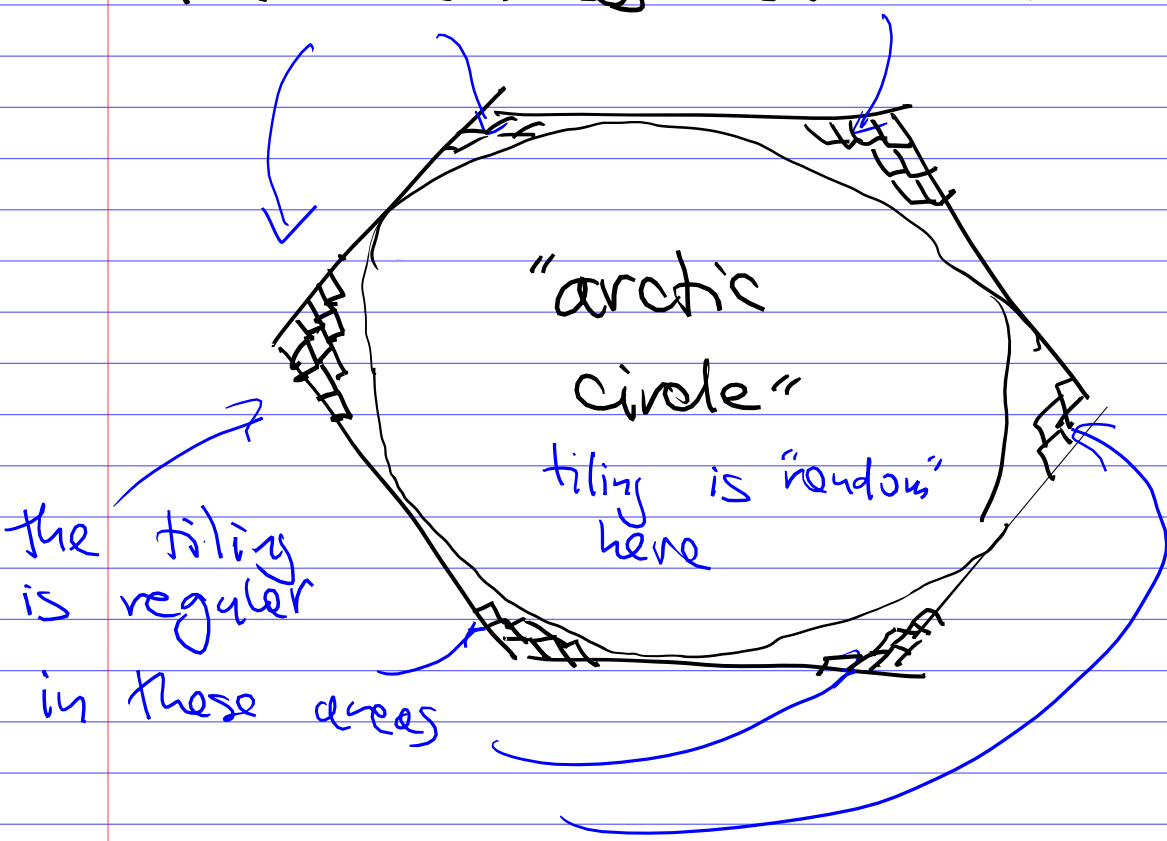 "arctic
circle"
tiling is "random"
here
the tiling
is regular
in these areas